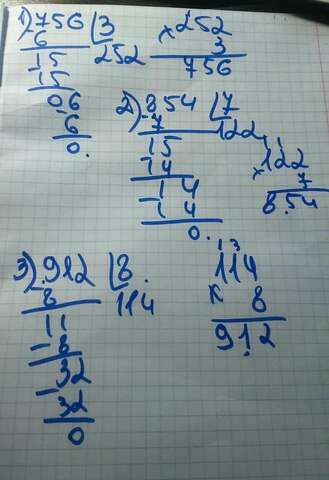 1) 756 | 3 × 252
- 6 252 3
15 756
- 15
06
- 6
0.
2) 854 | 7
- 7 122
15 × 122
- 14 7
14 854
- 14
0.
3) 912 | 8 1 3
- 8 114 114
11 × 8
- 8 912
32
- 32
0